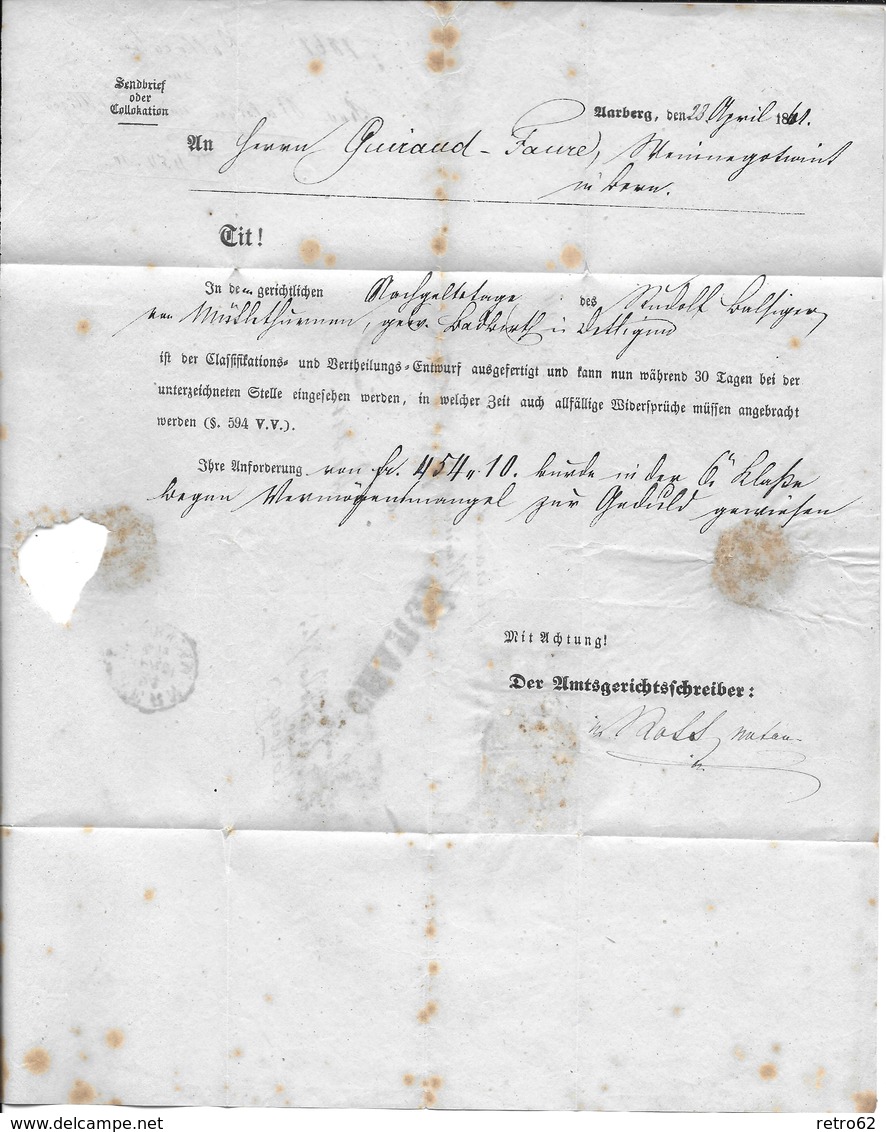 Sendbrief
oder
Collokation
Aarberg, den 23 April 1861.
An Herrn Guiraud-Faure, Weinnegotiant
in Bern.
Tit!
In dem gerichtlichen Nachgeltstage des Rudolf Balsiger,
von Mühlethurnen, gew. Badwirth in Dettigen
ist der Classifikations- und Vertheilungs-Entwurf ausgefertigt und kann nun während 30 Tagen bei der
unterzeichneten Stelle eingesehen werden, in welcher Zeit auch allfällige Widersprüche müssen angebracht
werden (§. 594 V.V.).
Ihre Anforderung von fr. 454 „ 10. wurde in der 6n Klaße
wegen Vermögensmangel zur Geduld gewiesen
Mit Achtung!
Der Amtsgerichtsschreiber:
notar
www.delcampe.net
retro62